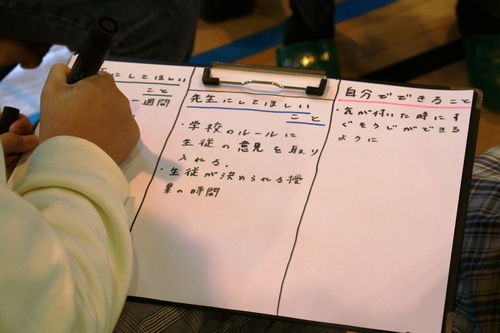 にしてほしい
こと
一週間
先生にしてほしい
こと
・学校のルールに
生徒の意見を取り
入れる.
・生徒が決められる授
業の時間
自分でできること
・気が付いた時にす
ぐそうじができる
ように